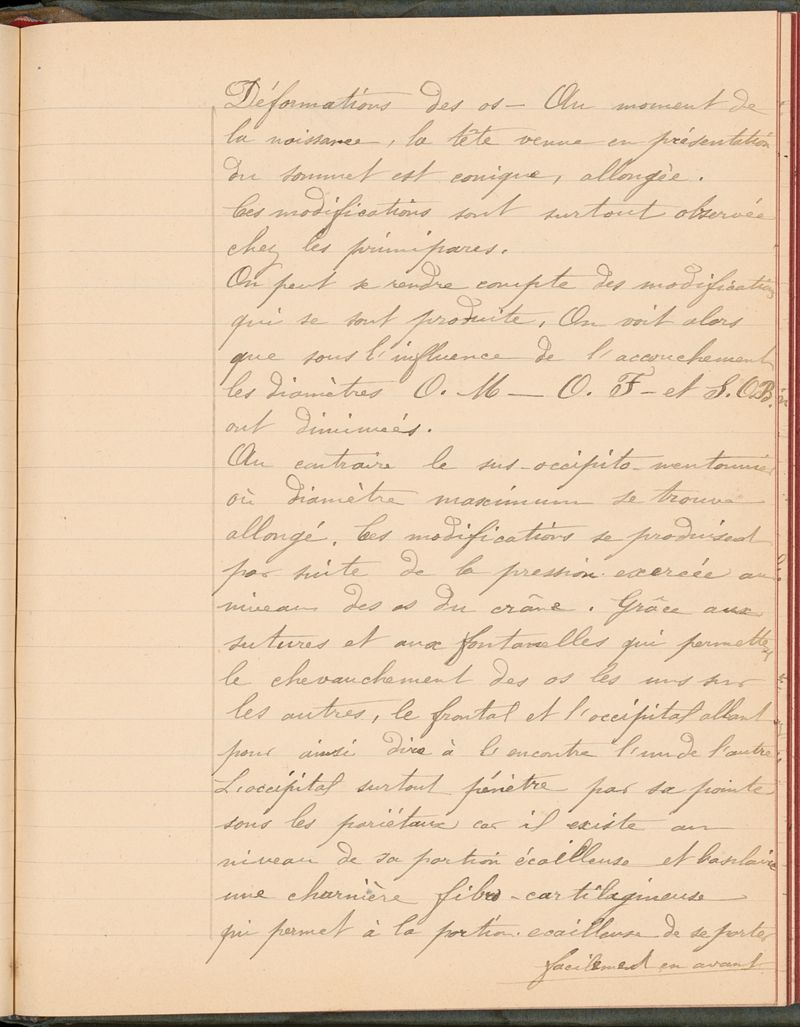 Déformations des os — Au moment de
la naissance, la tête venue en présentation
du sommet est conique, allongée.
Ces modifications sont surtout observée
chez les primipares.
On peut se rendre compte des modifications
qui se sont produite, On voit alors
que sous l'influence de l'accouchement
les diamètres O. M — O. F — et S. O.B.
ont diminués.
Au contraire le sus-occipito-mentonnier
où diamètre maximum se trouve
allongé. Ces modifications se produisent
par suite de la pression exercée au
niveau des os du crâne. Grâce aux
sutures et aux fontanelles qui permettent
le chevauchement des os les uns sur
les autres, le frontal et l'occipital allant
pour ainsi dire à l'encontre l'un de l'autre
L'occipital surtout pénètre par sa pointe
sous les pariétaux car il existe au
niveau de sa portion écailleuse et basilaire
une charnière fibro-cartilagineuse
qui permet à la portion ecailleuse de se porter
facilement en avant